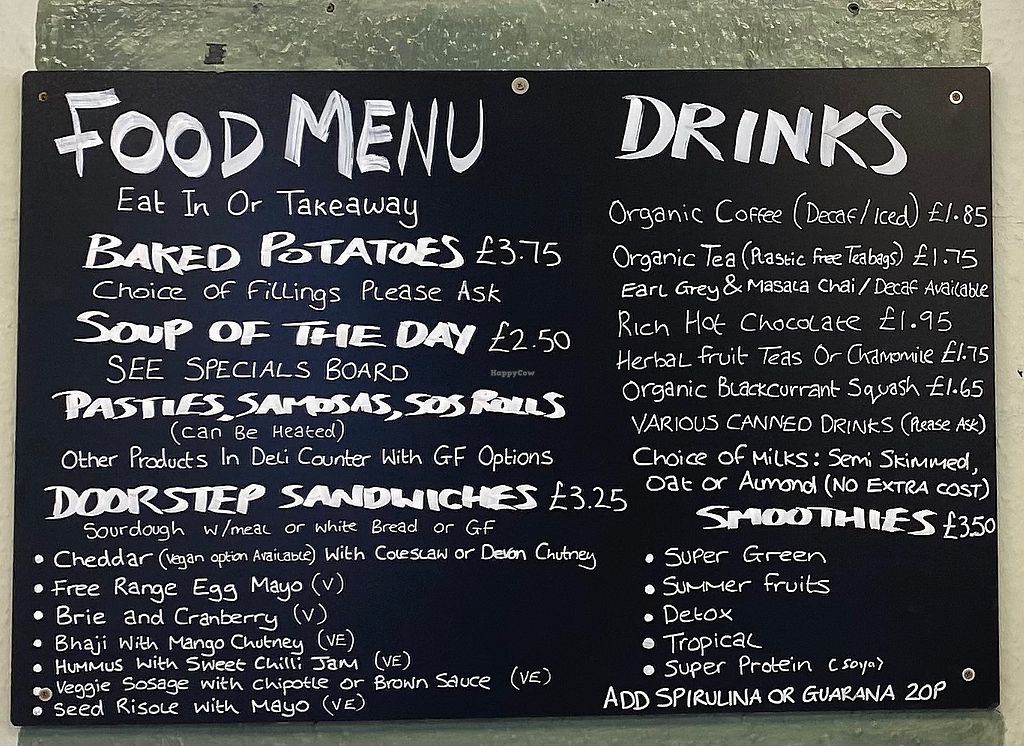 FOOD MENU
Eat In Or Takeaway
BAKED POTATOES £3.75
Choice Of Fillings Please Ask
SOUP OF THE DAY £2.50
SEE SPECIALS BOARD
PASTIES, SAMOSAS, SOS ROLLS
(Can Be Heated)
Other Products In Deli Counter With GF Options
DOORSTEP SANDWICHES £3.25
Sourdough w/meal or white Bread or GF
• Cheddar (Vegan option Available) With Coleslaw or Devon Chutney
• Free Range Egg Mayo (V)
• Brie and Cranberry (V)
• Bhaji With Mango Chutney (VE)
• Hummus With Sweet Chilli Jam (VE)
• Veggie Sosage with Chipotle or Brown Sauce (VE)
• Seed Risole With Mayo (VE)
DRINKS
Organic Coffee (Decaf/Iced) £1.85
Organic Tea (Plastic Free Teabags) £1.75
Earl Grey & Masala Chai / Decaf Available
Rich Hot Chocolate £1.95
Herbal Fruit Teas Or Chamomile £1.75
Organic Blackcurrant Squash £1.65
VARIOUS CANNED DRINKS (Please Ask)
Choice of Milks: Semi Skimmed,
Oat or Almond (NO EXTRA COST)
SMOOTHIES £3.50
• Super Green
• Summer Fruits
• Detox
• Tropical
• Super Protein (Soya)
ADD SPIRULINA OR GUARANA 20P
HappyCow